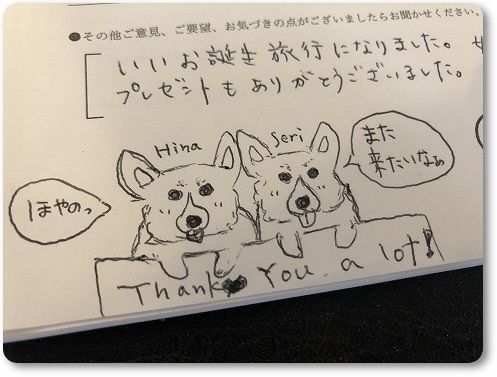 ●その他ご意見、ご要望、お気づきの点がございましたらお聞かせください。
いいお誕生旅行になりました。
プレゼントもありがとうございました。
Hina
Seri
また
来たいなぁ
ほやのっ
Thank You a lot!